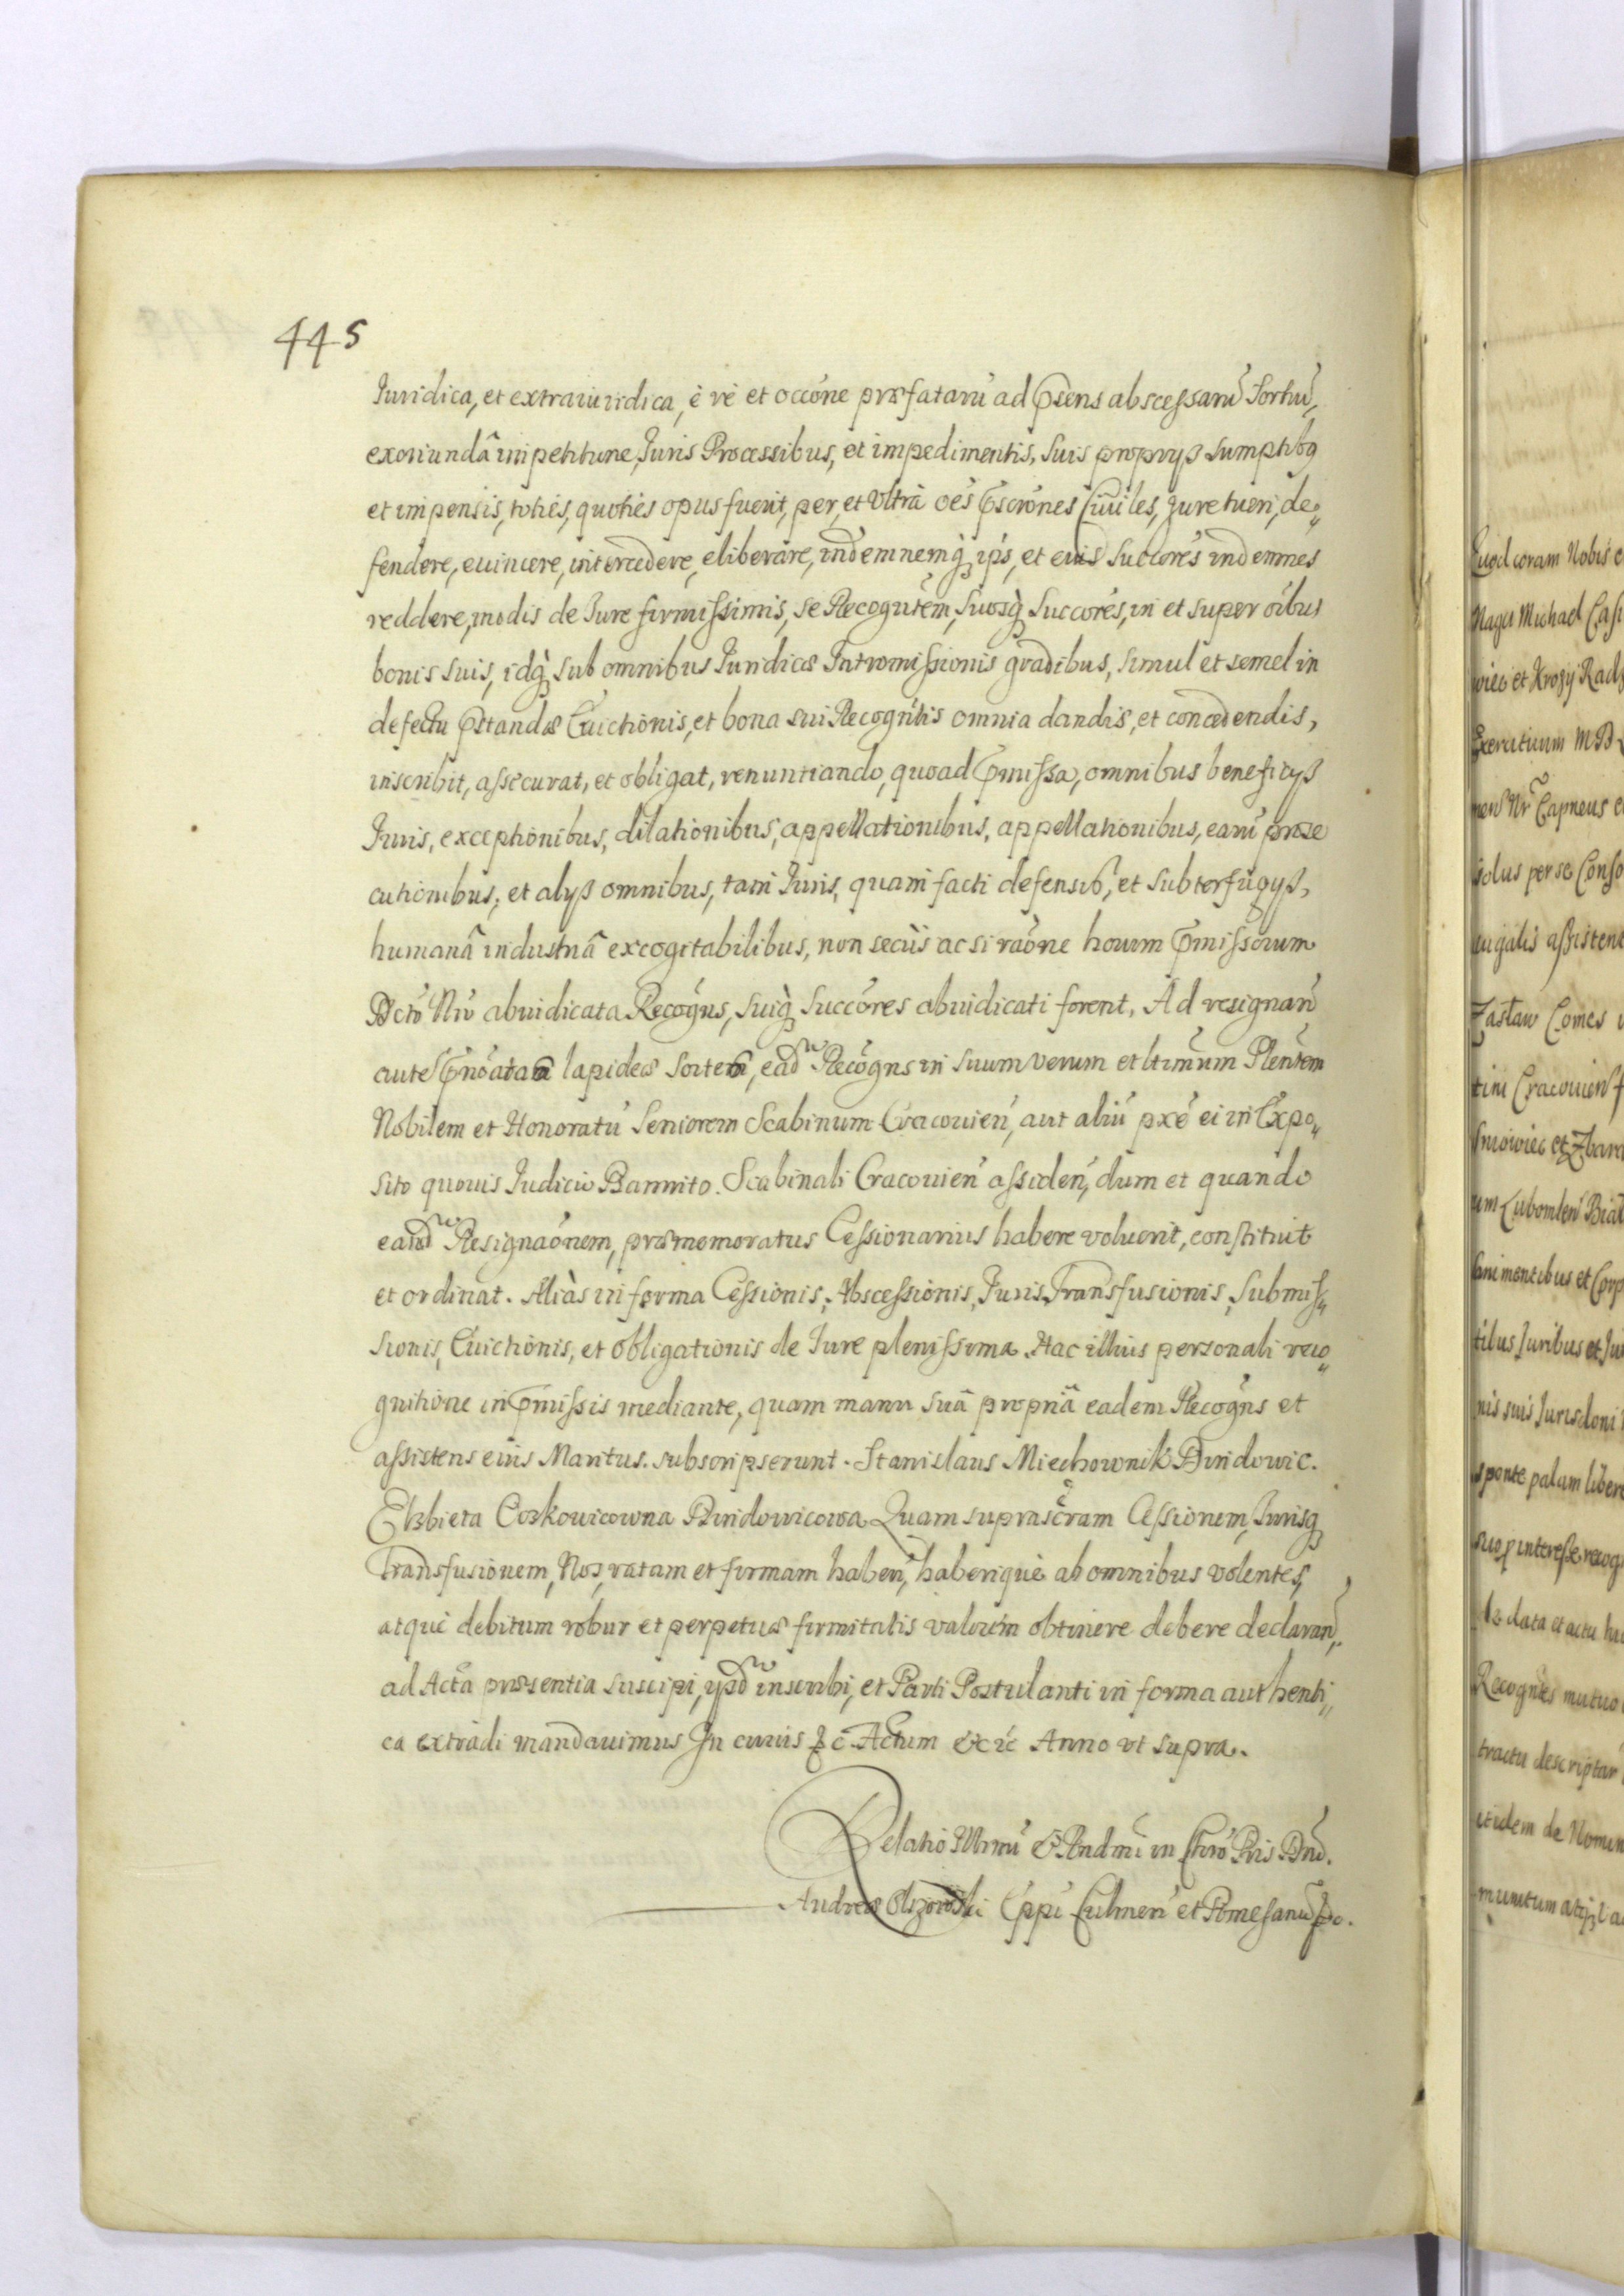 445
Iuridica, et extraiuridica, è ré et occóne præfatarũ ad p̃sens abscessarũ Sortiũ,
exoriundâ impetitione, Iuris Processibus, et impedimentis, suis proprijs sumptibꝫ
et impensis, toties, quoties opus fuerit, per, et vltrà oẽs p̃scrónes Ciuiles, Iure tueri, de„
fendere, euincere, intercedere, eliberare, indemnemqꝫ ips, et eius Succóres indemnes
reddere, modis de Iure firmissimis, se Recognt̃em, suosqꝫ Succóres, in et super oĩbus
bonis suis, idqꝫ sub omnibus Iuridicæ Intromissionis gradibus, simul et semel in
defectu p̃standæ Euictionis, et bona sui Recognitis omnia dandis, et concedendis,
inscribit, assecurat, et obligat, renuntiando, quoad p̃missa, omnibus beneficijs
Iuris, exceptionibus, dilationibus, appellationibus, appellationibus, earũ prose
cutionibus, et alijs omnibus, tam Iuris, quam facti defensib̃, et subterfugijs,
humanâ industriâ excogitabilibus, non secùs ac si raóne horum p̃missorum
Dcto Nrõ abiudicata Recogns, suiqꝫ Succóres abiudicati forent, Ad resignan̄
aute p̃noata lapideæ Sorte, ead̃ Recogns in suum verum et ltimum Plenẽm
Nobilem et Honoratũ Seniorem Scabinum Cracouien̄, aut aliũ pxé ei in Expo„
sito quouis Iudicio Bannito. Scabinali Cracouien̄ assiden̄, dum et quando
eand̃ Resignaónem, præmemoratus Cessionarius habere voluerit, constituit
et ordinat. Aliàs in forma Cessionis, Abscessionis, Iuris, Transfusionis, Submis„
sionis, Euictionis, et obligationis de Iure plenissima. Hac illius personali reco„
gnitione in p̃missis mediante, quam manu suâ propriâ eadem Recogns et
assistens eius Maritus. subscripserunt. Stanislaus Miechownik Dindowic.
Elzbieta Corkowicowna Dindowicowa Quam suprascr̃am Cessionem, Iurisqꝫ
transfusionem, Nos, ratam et firmam haben̄, haberiquè ab omnibus volentes,
atquè debitum robur et perpetuæ firmitatis valorem obtinere debere declaran̄,
ad Acta præsentia suscipi, ijsd̃ inscribi, et Parti Postulanti in forma authenti„
ca extradi mandauimus In cuius &c Actum &c &c Anno vt supra.
Relatio Illrmi & Rndmi in Chro Pris Dnĩ.
Andreæ Olszowski Eppi Culmen̄ et Pomesaniæ